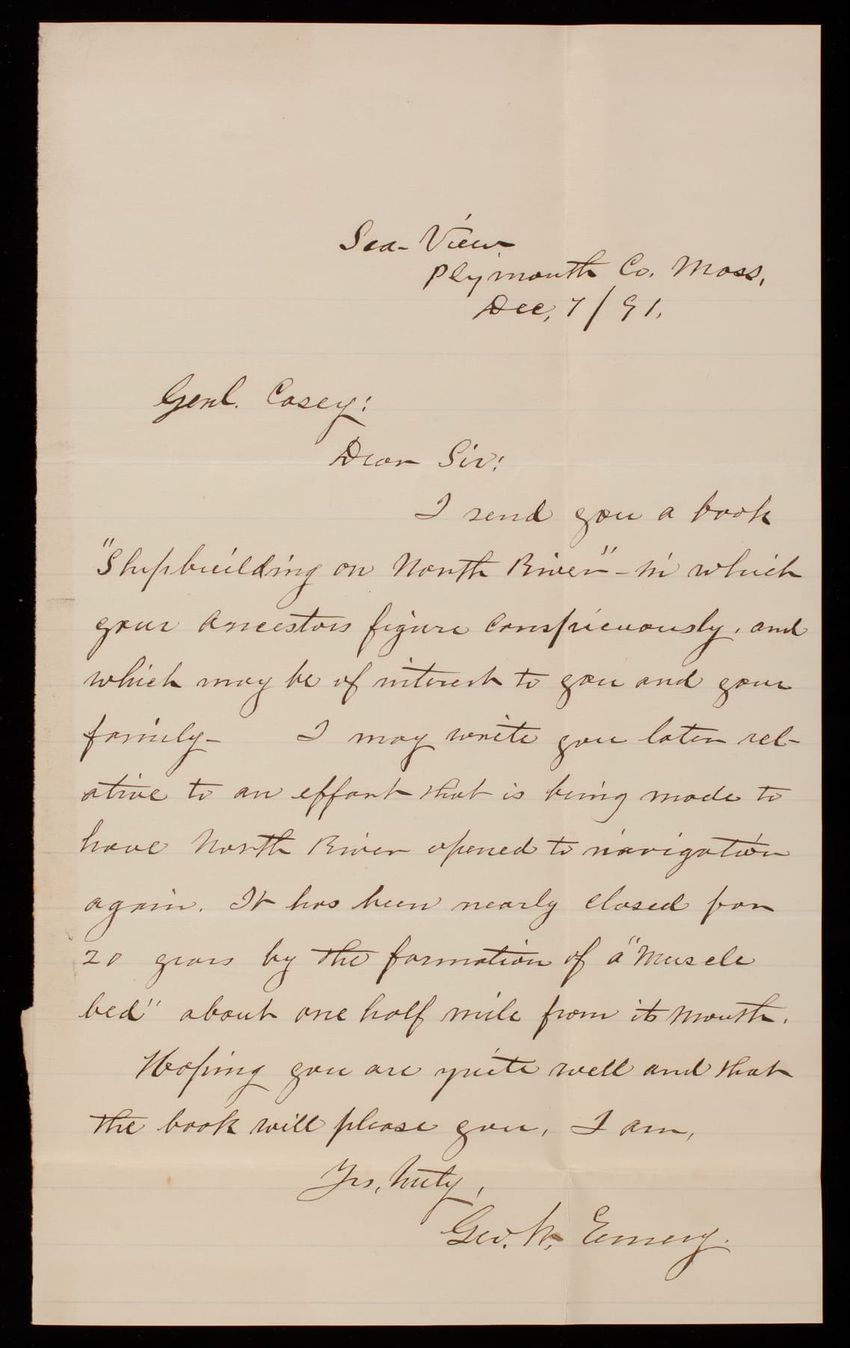 Sea-View
Plymouth Co. Mass.
Dec, 7/91.
Genl. Casey:
Dear Sir:
I send you a book
"Shipbuilding on North River" - in which
your ancestors figure conspicuously, and
which may be of interest to you and your
family - I may write you later rel-
ative to an effort that is being made to
have North River opened to navigation
again. It has been nearly closed for
20 years by the formation of a "Muscle
bed" about one half mile from its mouth.
Hoping you are quite well and that
the book will please you, I am,
Yrs, truly,
Geo. W. Emery.